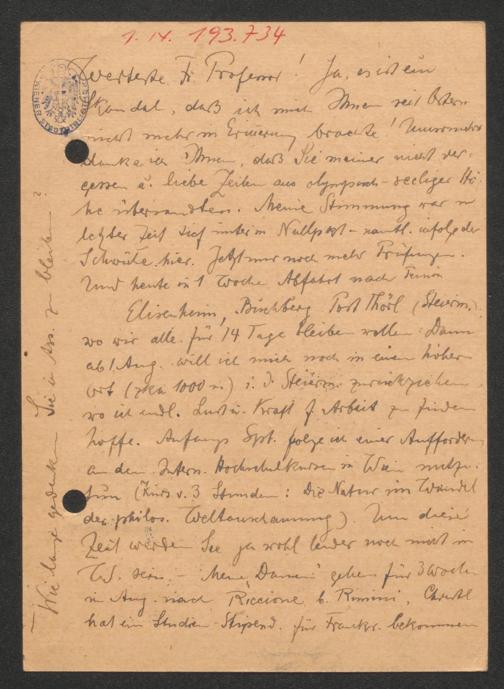 1. IX. 193.734
Ew werteste Fr. Professor! Ja, es ist ein
Skandal, daß ich mich Ihnen seit Ostern
nicht mehr in Erinnerung brachte! Umsomehr
danke ich Ihnen, daß Sie meiner nicht ver-
gessen u. liebe Zeilen aus olympisch-seeliger Hö-
he übersandten. Meine Stimmung war in
letzter Zeit tief unterm Nullpkt - namtl. infolge der
Schwüle hier. Jetzt nur noch mehr Prüfungen.
Und heute in 1 Woche Abfahrt nach
Elisenheim, Büchberg Post Thörl (Steierm.)
wo wir alle für 14 Tage bleiben wollen. Dann
ab 1 Aug. will ich mich noch in einen höhern
Ort (zirka 1000 m.) i. d. Steierm. zurückziehen
wo ich endl. Lust u. Kraft f. Arbeit zu finden
hoffe. Anfangs Spt. folge ich einer Aufforderung
an den Intern. Hochschulkursen in Wien mitzu-
tun (Kurs v. 3 Stunden: Die Natur im Wandel
der philos. Weltanschauung). Um diese
Zeit werden Sie ja wohl leider noch nicht in
W. sein. - Meine „Damen" gehen für 3 Wochen
im Aug. nach Riccione b. Rimini, Christl
hat ein Studien-Stipend. für Frankr. bekommen
- Wie lange gedenken Sie in Ass. zu bleiben?